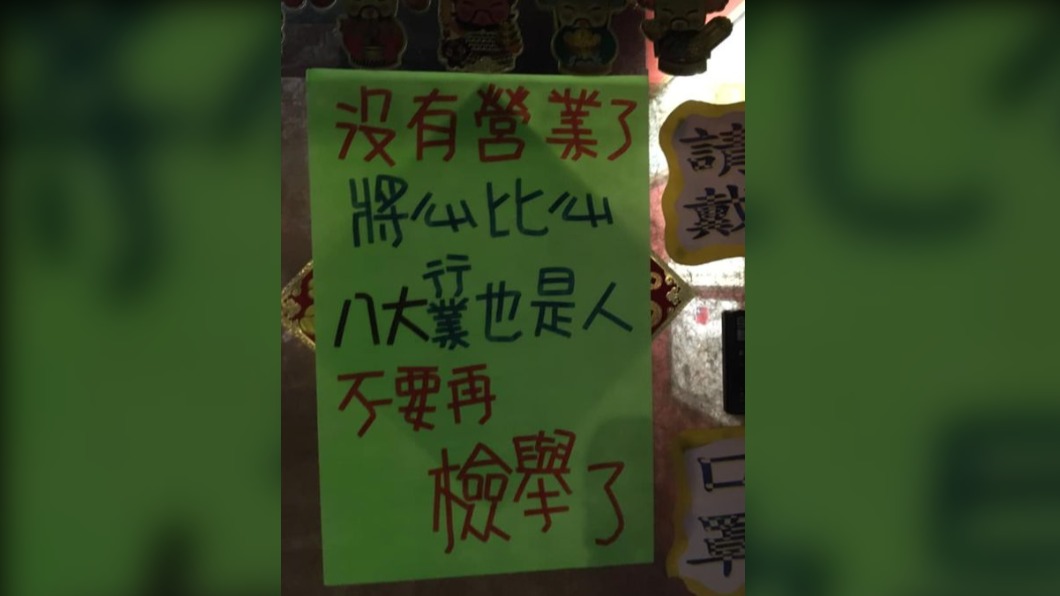 沒有營業了
將心比心
八大行業也是人
不要再
檢舉了
請戴
口罩